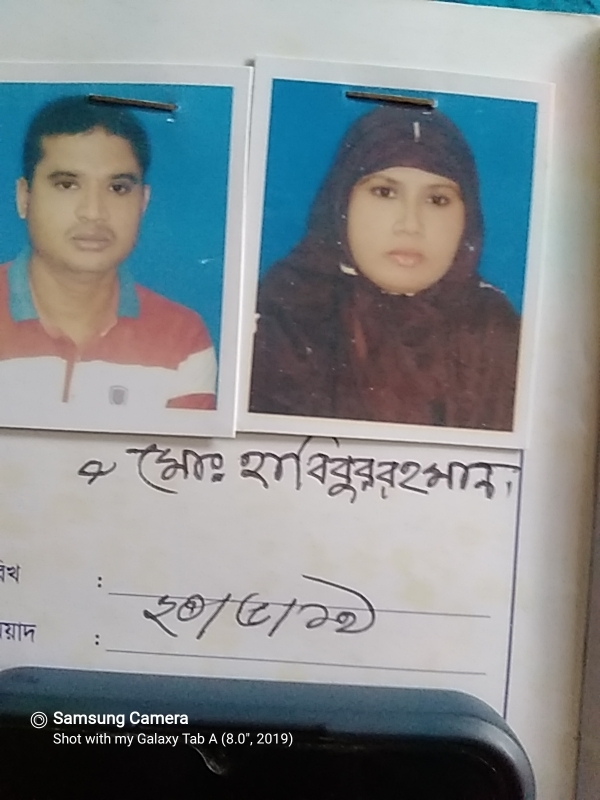 মোঃ হাবিবুর রহমান
রিখ :
য়াদ :
Samsung Camera
Shot with my Galaxy Tab A (8.0", 2019)